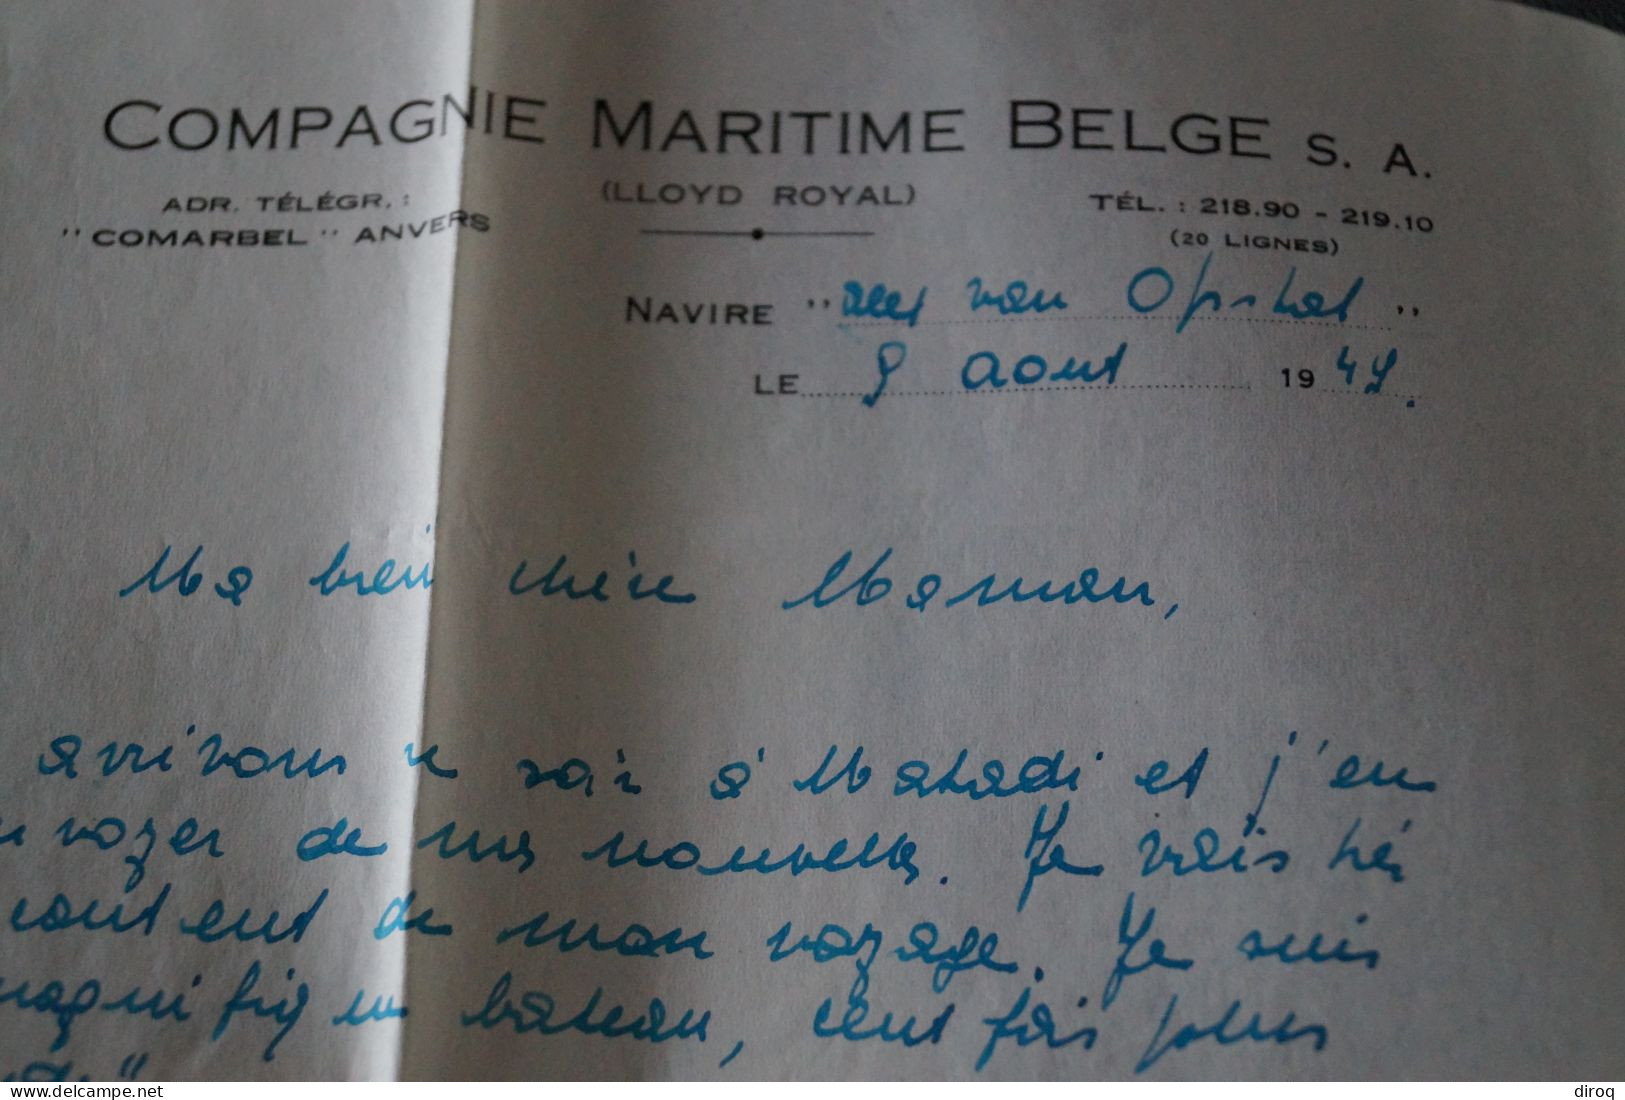 COMPAGNIE MARITIME BELGE S. A.
ADR. TÉLÉGR. : (LLOYD ROYAL) TÉL. : 218.90 - 219.10
"COMARBEL" ANVERS (20 LIGNES)
NAVIRE " van Opstal "
LE 9 aout 1949.
Ma bien chère Maman,
arrivons ce soir à Matadi et j'en
de mes nouvelles. Je vais très
content de mon voyage. Je suis
bateau, cent fois plus
diroq